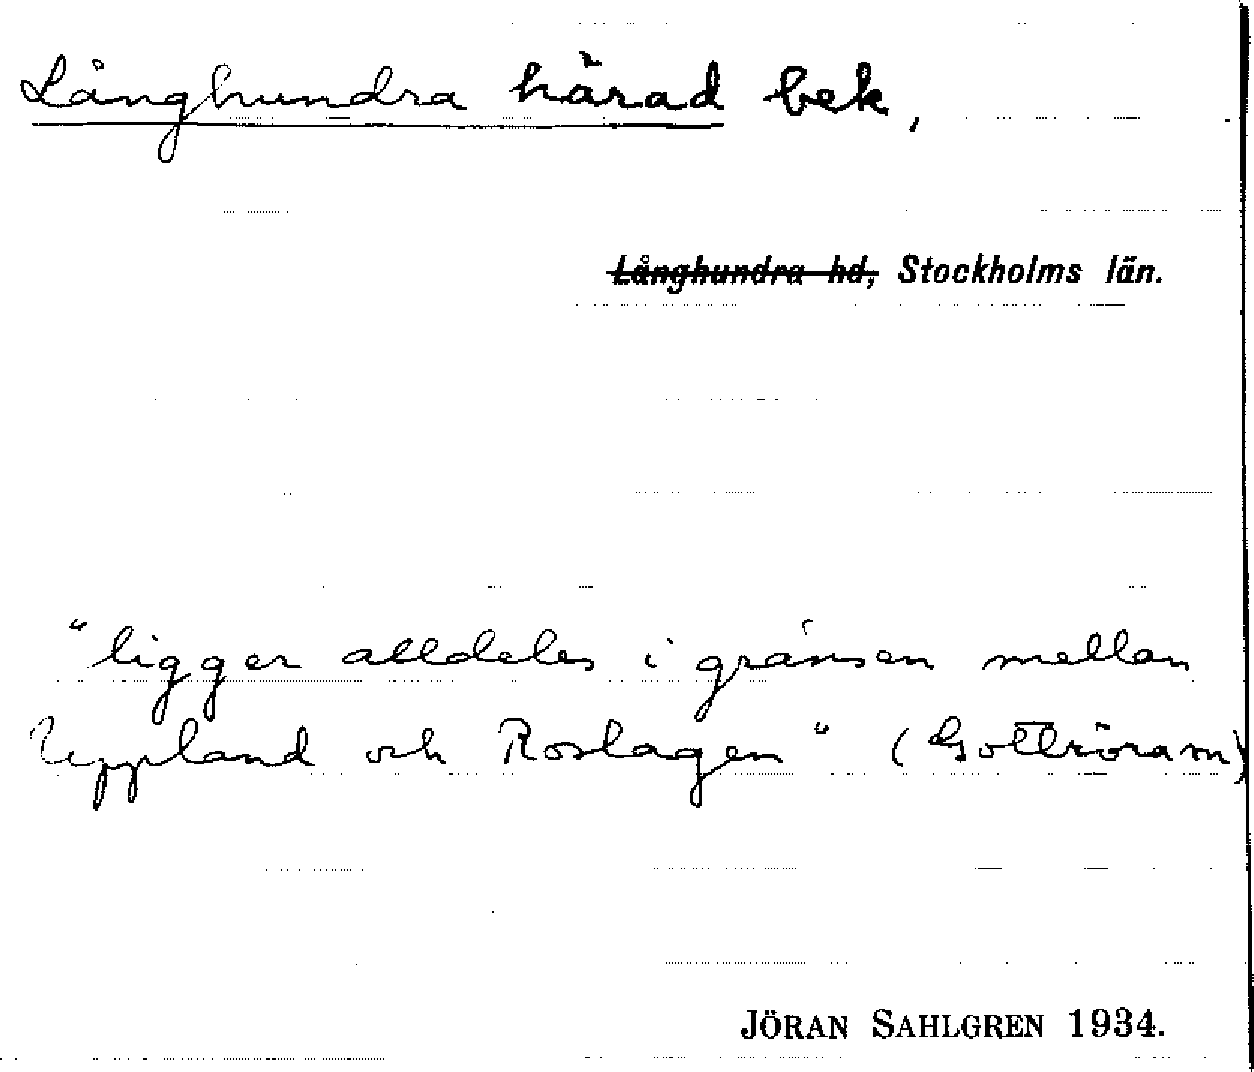 Långhundra härad bek,
Långhundra hd, Stockholms län.
"ligger alldeles i gränsen mellan
Uppland och Roslagen" (Gottröram)
JÖRAN SAHLGREN 1934.